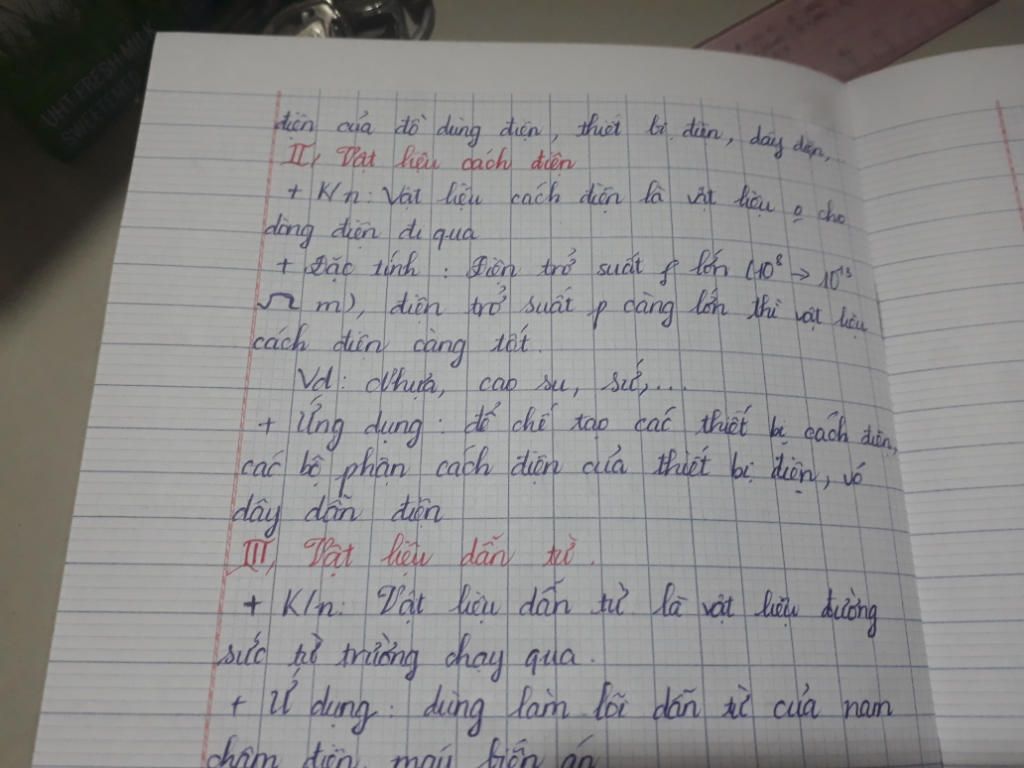 UHT FRESH MILK
SWEETENED
điện của đồ dùng điện, thiết bị điện, dây điện,...
II, Vật liệu cách điện
+ K/n: Vật liệu cách điện là vật liệu o cho
dòng điện đi qua
+ Đặc tính: Điện trở suất ρ lớn (10⁸ → 10¹³
Ω m), điện trở suất ρ càng lớn thì vật liệu
cách điện càng tốt.
Vd: Nhựa, cao su, sứ,...
+ Ứng dụng: để chế tạo các thiết bị cách điện,
các bộ phận cách điện của thiết bị điện, vỏ
dây dẫn điện
III, Vật liệu dẫn từ.
+ K/n: Vật liệu dẫn từ là vật liệu đường
sức từ trường chạy qua.
+ Ứ dụng: dùng làm lõi dẫn từ của nam
châm điện, máy biến áp